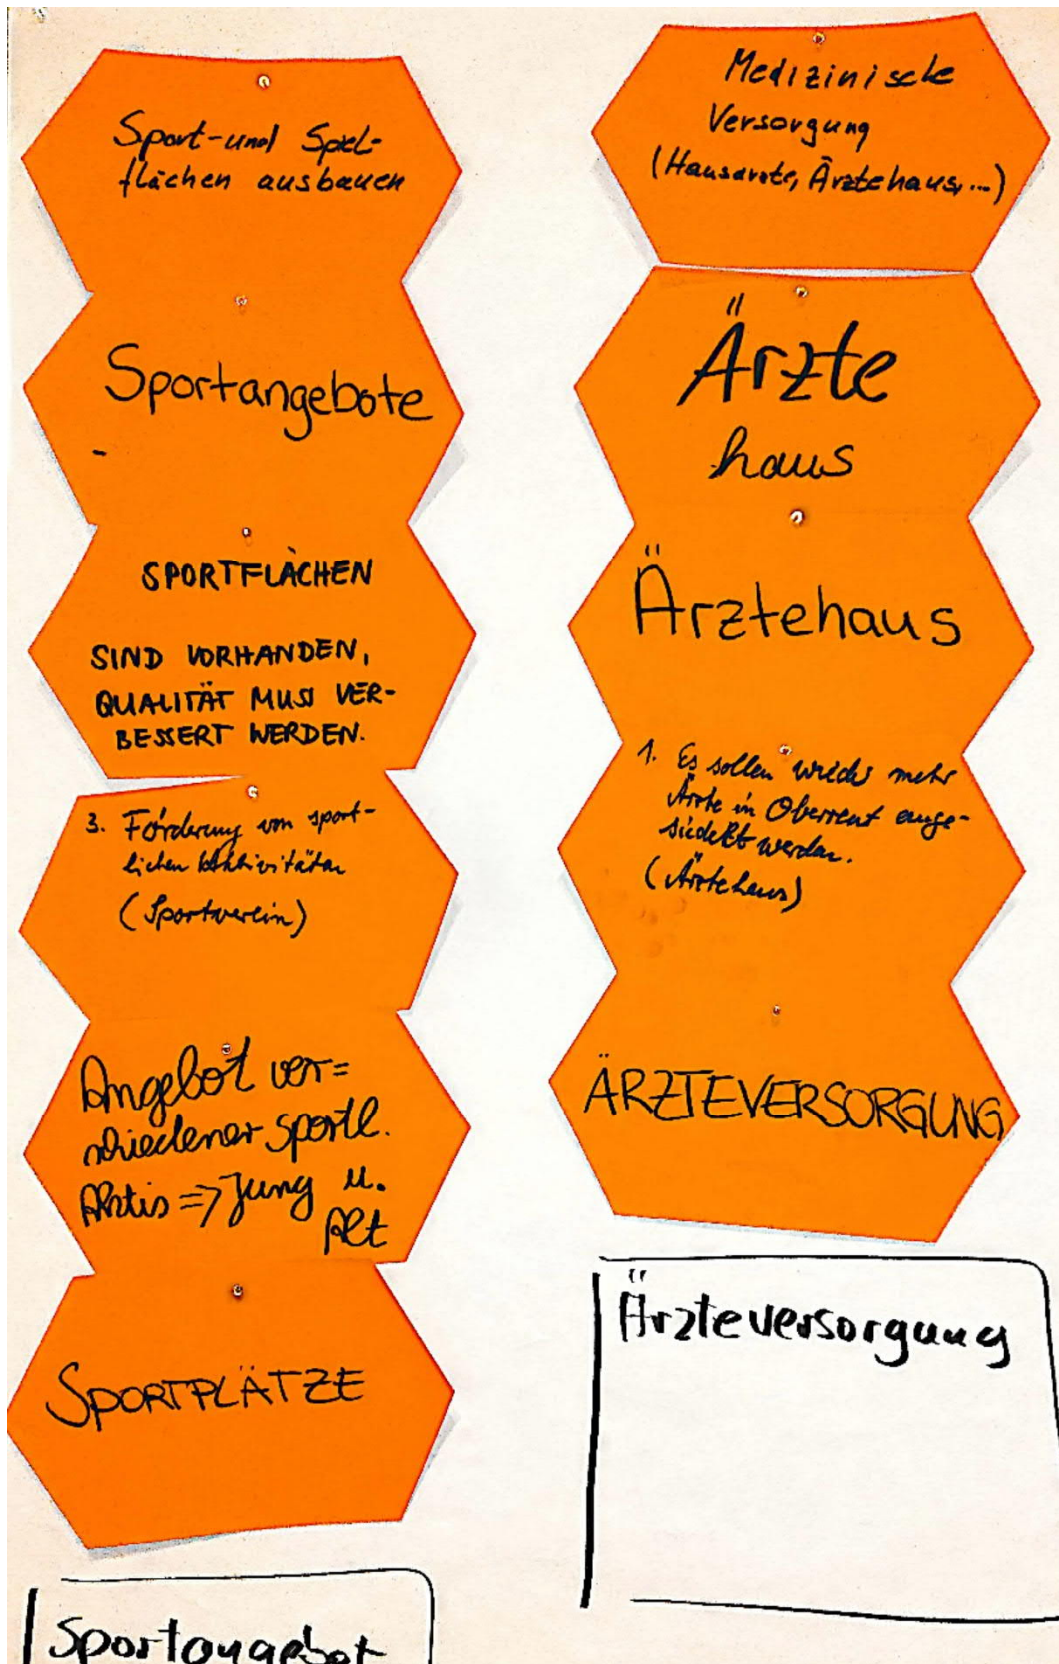 Sport-und Spiel-
flächen ausbauen
Sportangebote
-
SPORTFLÄCHEN
SIND VORHANDEN,
QUALITÄT MUSS VER-
BESSERT WERDEN.
3. Förderung von sport-
lichen Aktivitäten
(Sportverein)
Angebot ver=
schiedener sportl.
Aktis => Jung u.
Alt
SPORTPLÄTZE
Sportangebot
Medizinische
Versorgung
(Hausärzte, Ärztehaus, ...)
Ärzte
haus
Ärztehaus
1. Es sollen wieder mehr
Ärzte in Oberreut ange-
siedelt werden.
(Ärztehaus)
ÄRZTEVERSORGUNG
Ärzteversorgung